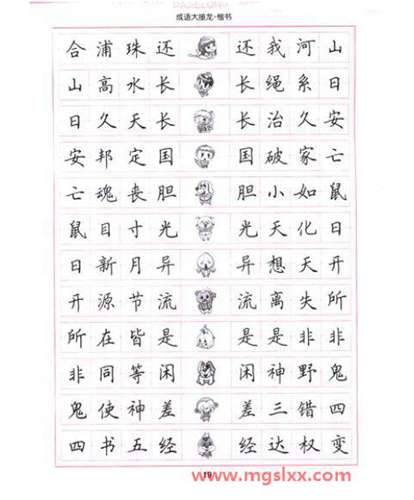 成语大接龙·楷书
合浦珠还 还我河山
山高水长 长绳系日
日久天长 长治久安
安邦定国 国破家亡
亡魂丧胆 胆小如鼠
鼠目寸光 光天化日
日新月异 异想天开
开源节流 流离失所
所在皆是 是是非非
非同等闲 闲神野鬼
鬼使神差 差三错四
四书五经 经达权变
19
www.mgslxx.com